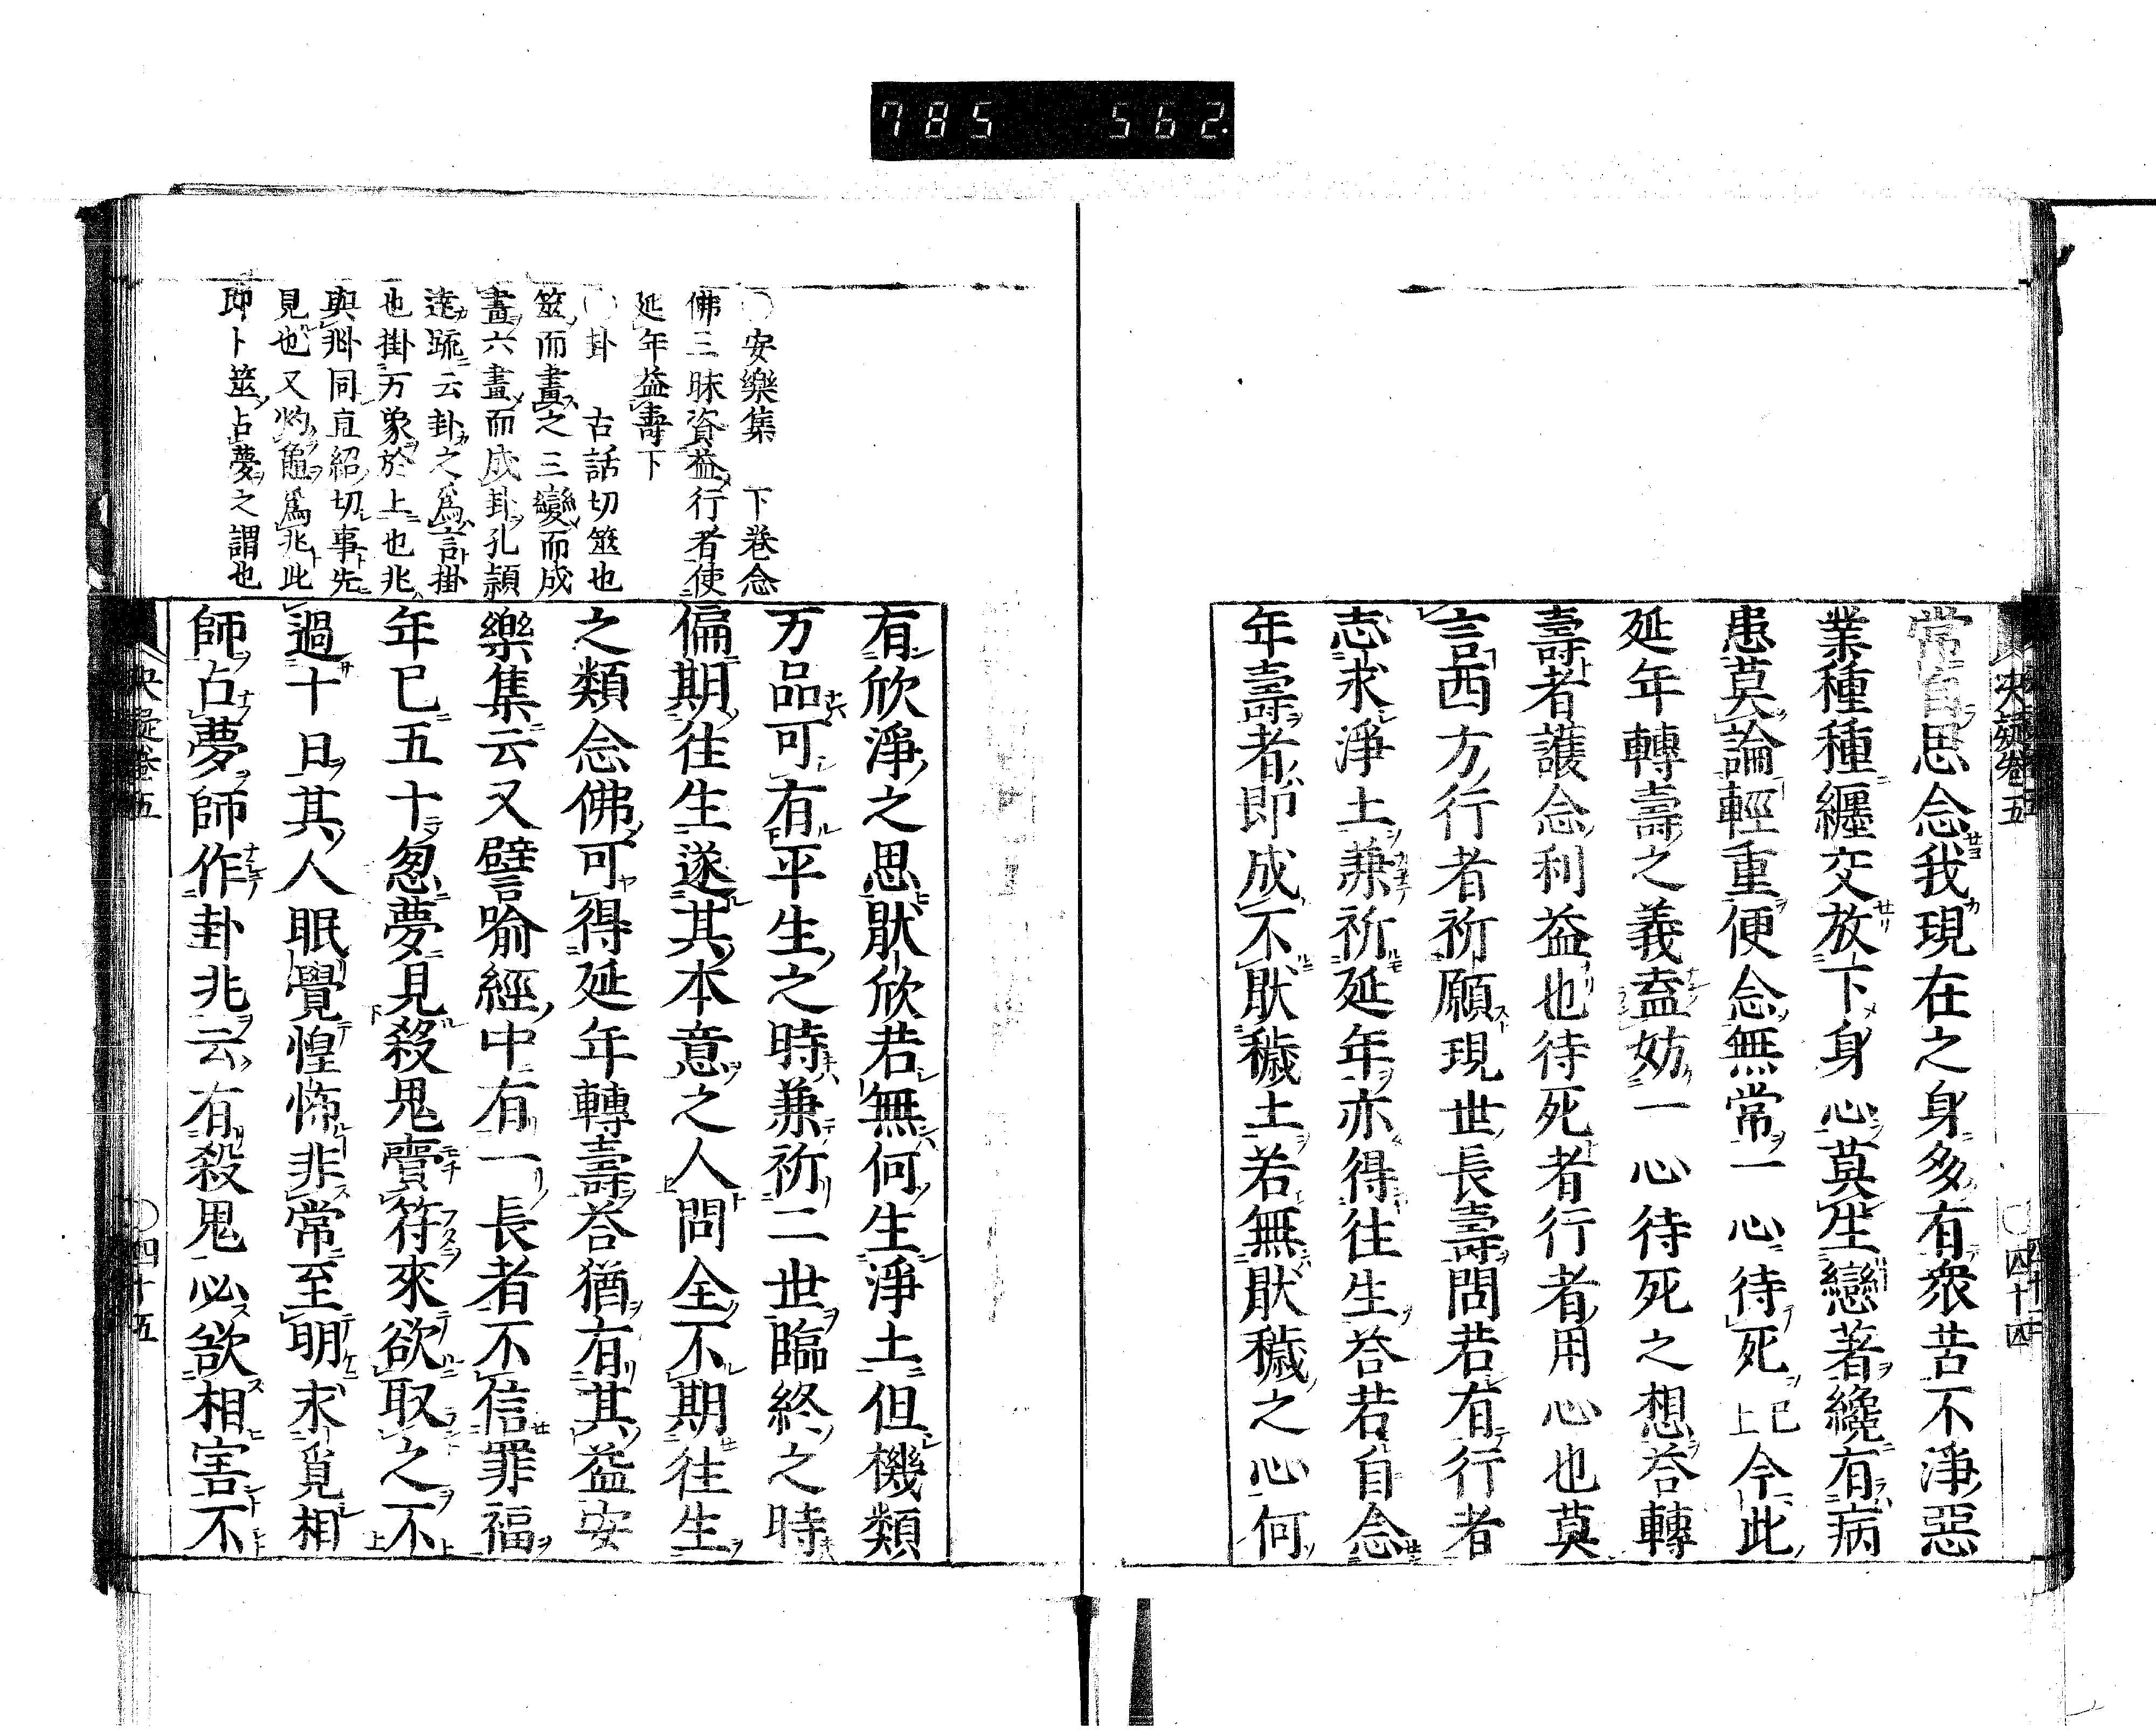 785 562.
決疑卷五 ○四十四
常自思念我現在之身多有衆苦不淨惡
業種種纏交放下身心莫生戀著纔有病
患莫論輕重便念無常一心待死已上今此
延年轉壽之義盍妨一心待死之想荅轉
壽者護念利益也待死者行者用心也莫
言西方行者祈願現世長壽問若有行者
志求淨土兼祈延年亦得往生荅若自念
年壽者即成不猒穢土若無猒穢之心何
有欣淨之思猒欣若無何生淨土但機類
万品可有平生之時兼祈二世臨終之時
偏期往生遂其本意之人問全不期往生
之類念佛可得延年轉壽荅猶有其益安
樂集云又譬喻經中有一長者不信罪福
年已五十忽夢見殺鬼賣符來欲取之不
過十日其人眠覺惶怖非常至明求覓相
師占夢師作卦兆云有殺鬼必欲相害不
○安樂集 下卷念
佛三昧資益行者使
延年益壽下
○卦 古話切筮也
筮而畫之三變而成
畫六畫而成卦孔頴
達疏云卦之爲言掛
也掛万象於上也兆
與𠧞同直紹切事先
見也又灼龜爲兆此
即卜筮占夢之謂也
決疑卷五 ○四十五